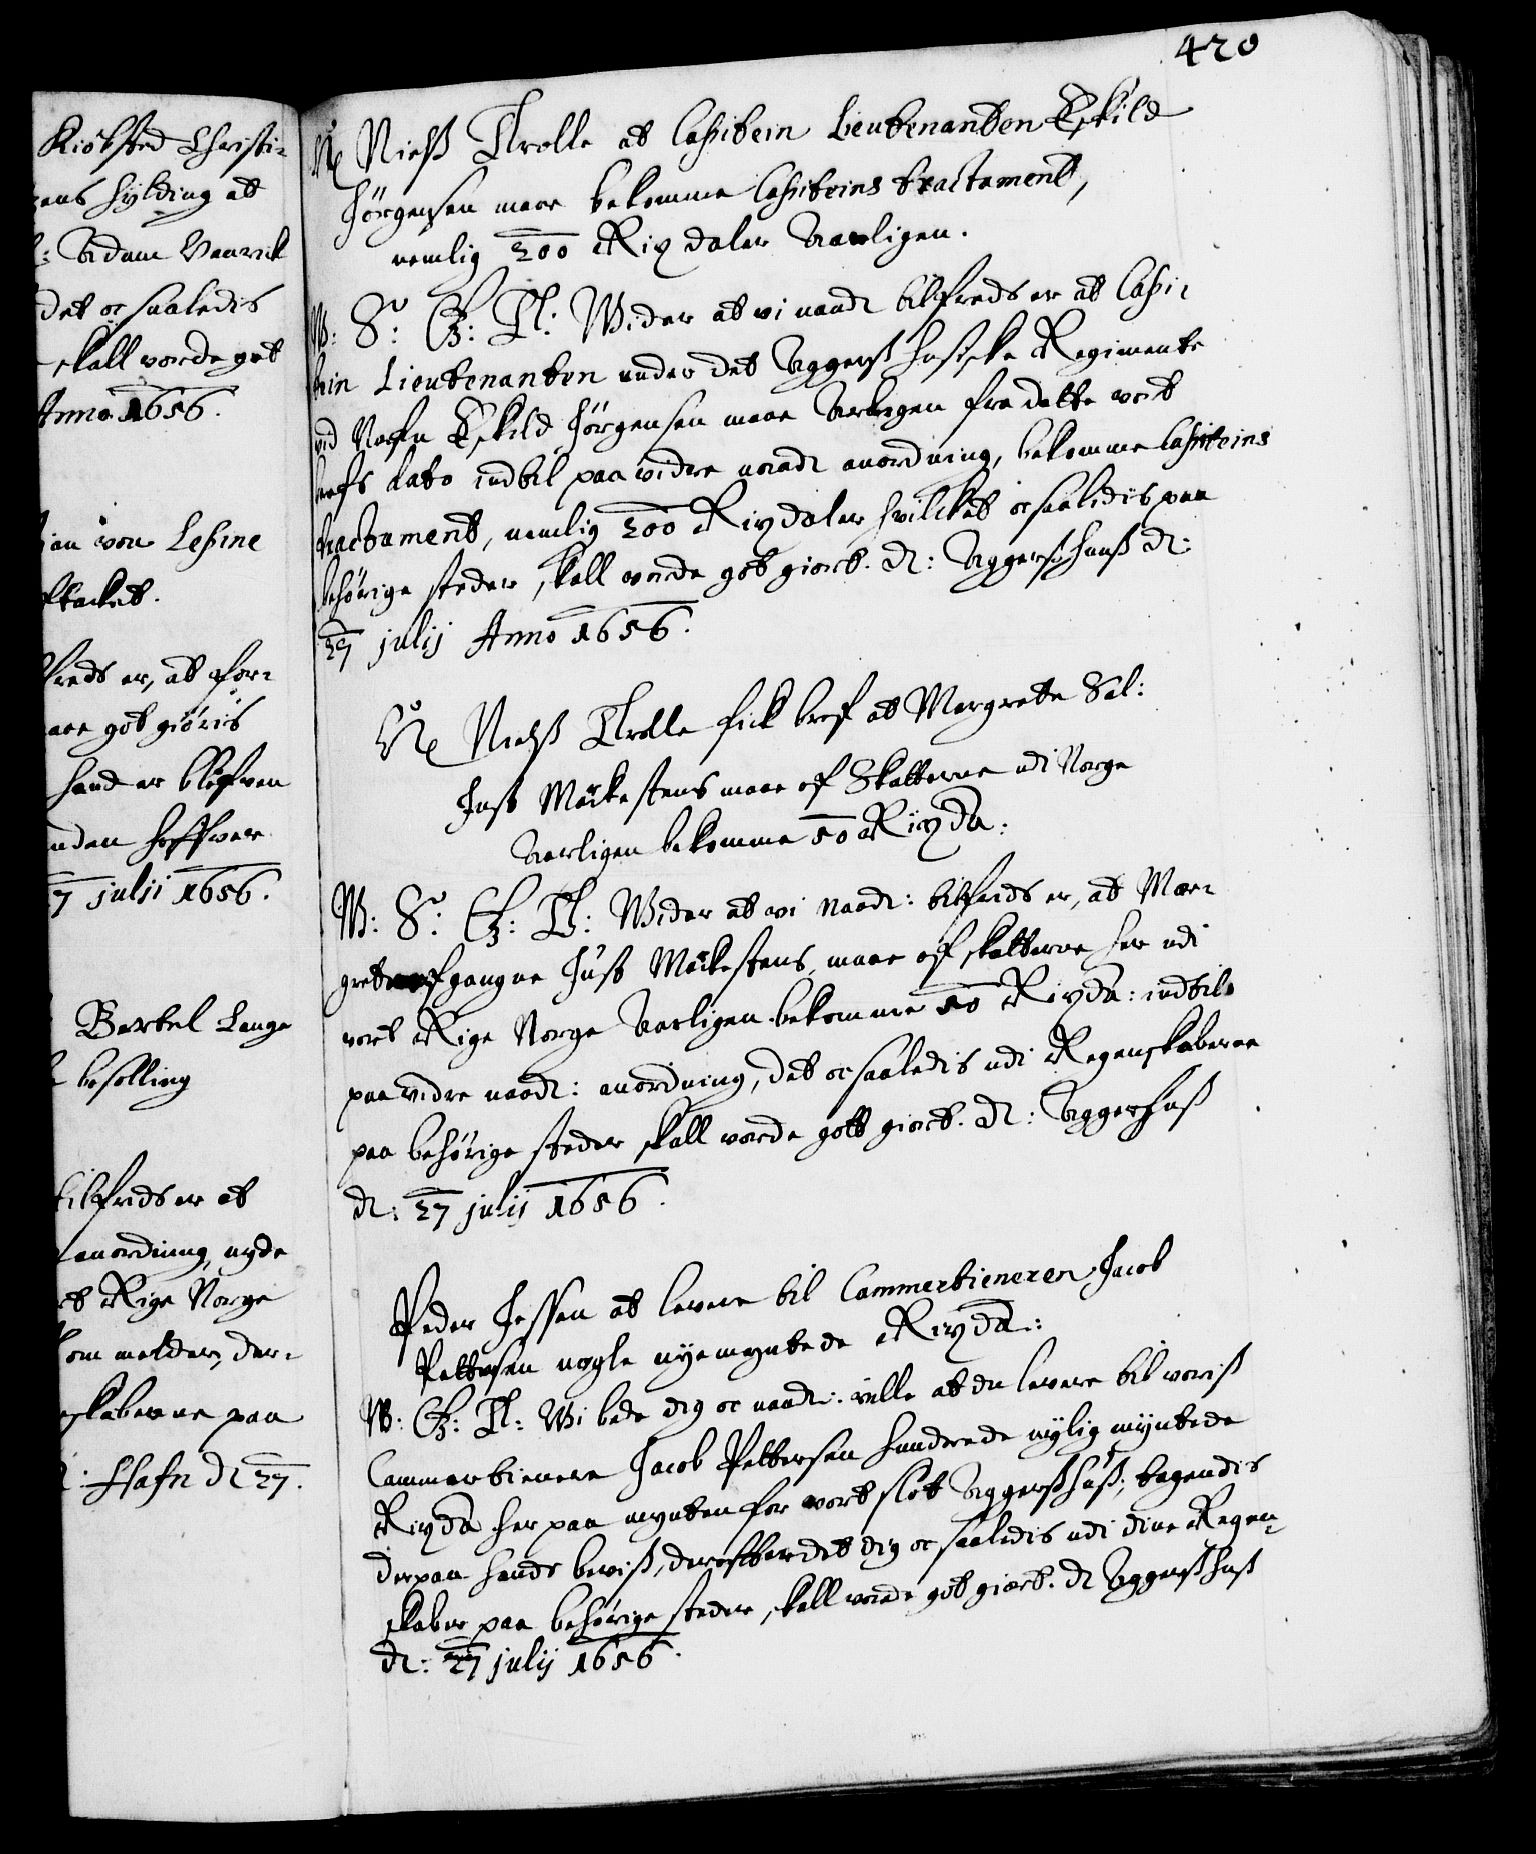 420
Kiöbsted Christi-
ens hylding at
: Adam Vaarvik
det oc saaledis
skall vorde got
Anno 1656.
ian von Lepine
stacket.
freds er, at for-
maae got giöris
hand er blefven
unden hoffver
27 julii 1656.
Bertel Lange
besolling
tilfreds er at
anordning, nyde
vort Rige Norge
som melder, der-
skaberne paa
Hafn dl 27.
Nielss Trolle at Capitein Lieutenanten Eskild
Jörgensen maae bekomme Capiteins tractament,
nemlig 200 Rixdaler Aarligen.
W: S: G: T: Wider at vi naadl tilfreds er at Capi-
tein Lieutenanten under det Aggerss husiske Regimente
ved Nafn Eskild Jörgensen maae Aarligen fra dette vort
brefs dato indtil paa videre naadl anordning, bekomme Capiteins
tractament, nemlig 200 Rixdaler hvilcket oc saaledis paa
behörige steder skall vorde got giort. dl: Aggerss huuss dl:
27 julij Anno 1656.
Nielss Trolle fick bref at Margrette Sal:
Just Möckestens maae af Skatterne udi Norge
Aarligen bekomme 50 Rixda:
W: S: G: T: Wider at vi Naadl: tilfreds er, at Mar-
grete afgangne Just Möckestens, maae af skatterne her udi
vort Rige Norge Aarligen bekomme 50 Rixda: indtil
paa vidre naadl: anordning, det oc saaledis udi Regenskaberne
paa behörige steder skall vorde gott giort. dl: Aggershuss
dl: 27 julij 1656.
Peder Jessen at levere til Cammertieneren Jacob
Pettersen nogle nye myntede Rixda:
W: G: T: Wi bede dig oc naadl: ville at du levere til voriss
Cammertienere Jacob Pettersen hundrede nylig myntede
Rixda her paa mynten for vort slot Aggersshuss, tagendis
derpaa hands beviss, derefter det dig oc saaledis udi dine Regen-
skaber paa behörige steder skall vorde got giort. dl Aggersshuss
dl: 27 julij 1656.